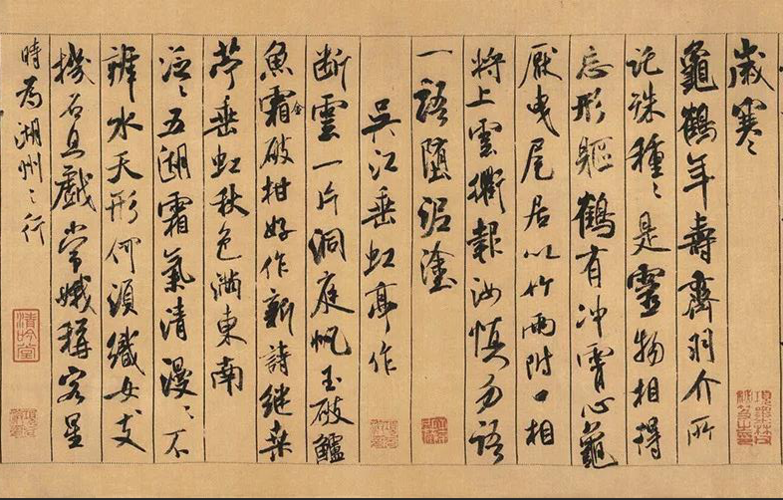 歲寒〻
龜鶴年壽齊羽介所
託殊種〻是靈物相得
忘形軀鶴有冲霄心龜
厭曳尾居以竹兩附口相
將上雲衢報汝慎勿語
一語墮泥塗
吳江垂虹亭作
断雲一片洞庭帆玉破鱸
魚霜金破柑好作新詩繼桑
苧垂虹秋色滿東南
泛〻五湖霜氣清漫〻不
辨水天形何須織女支
機石且戲常娥稱客星
時為湖州之行
清吟堂